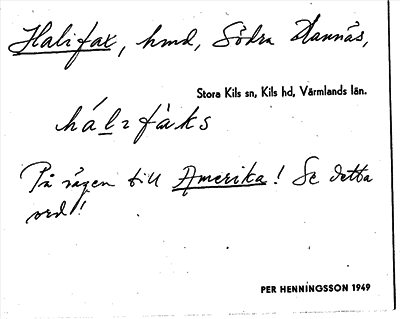 Halifax, hmd, Södra Hannäs,
Stora Kils sn, Kils hd, Värmlands län.
hálifàks
På vägen till Amerika! Se detta
ord!
PER HENNINGSSON 1949